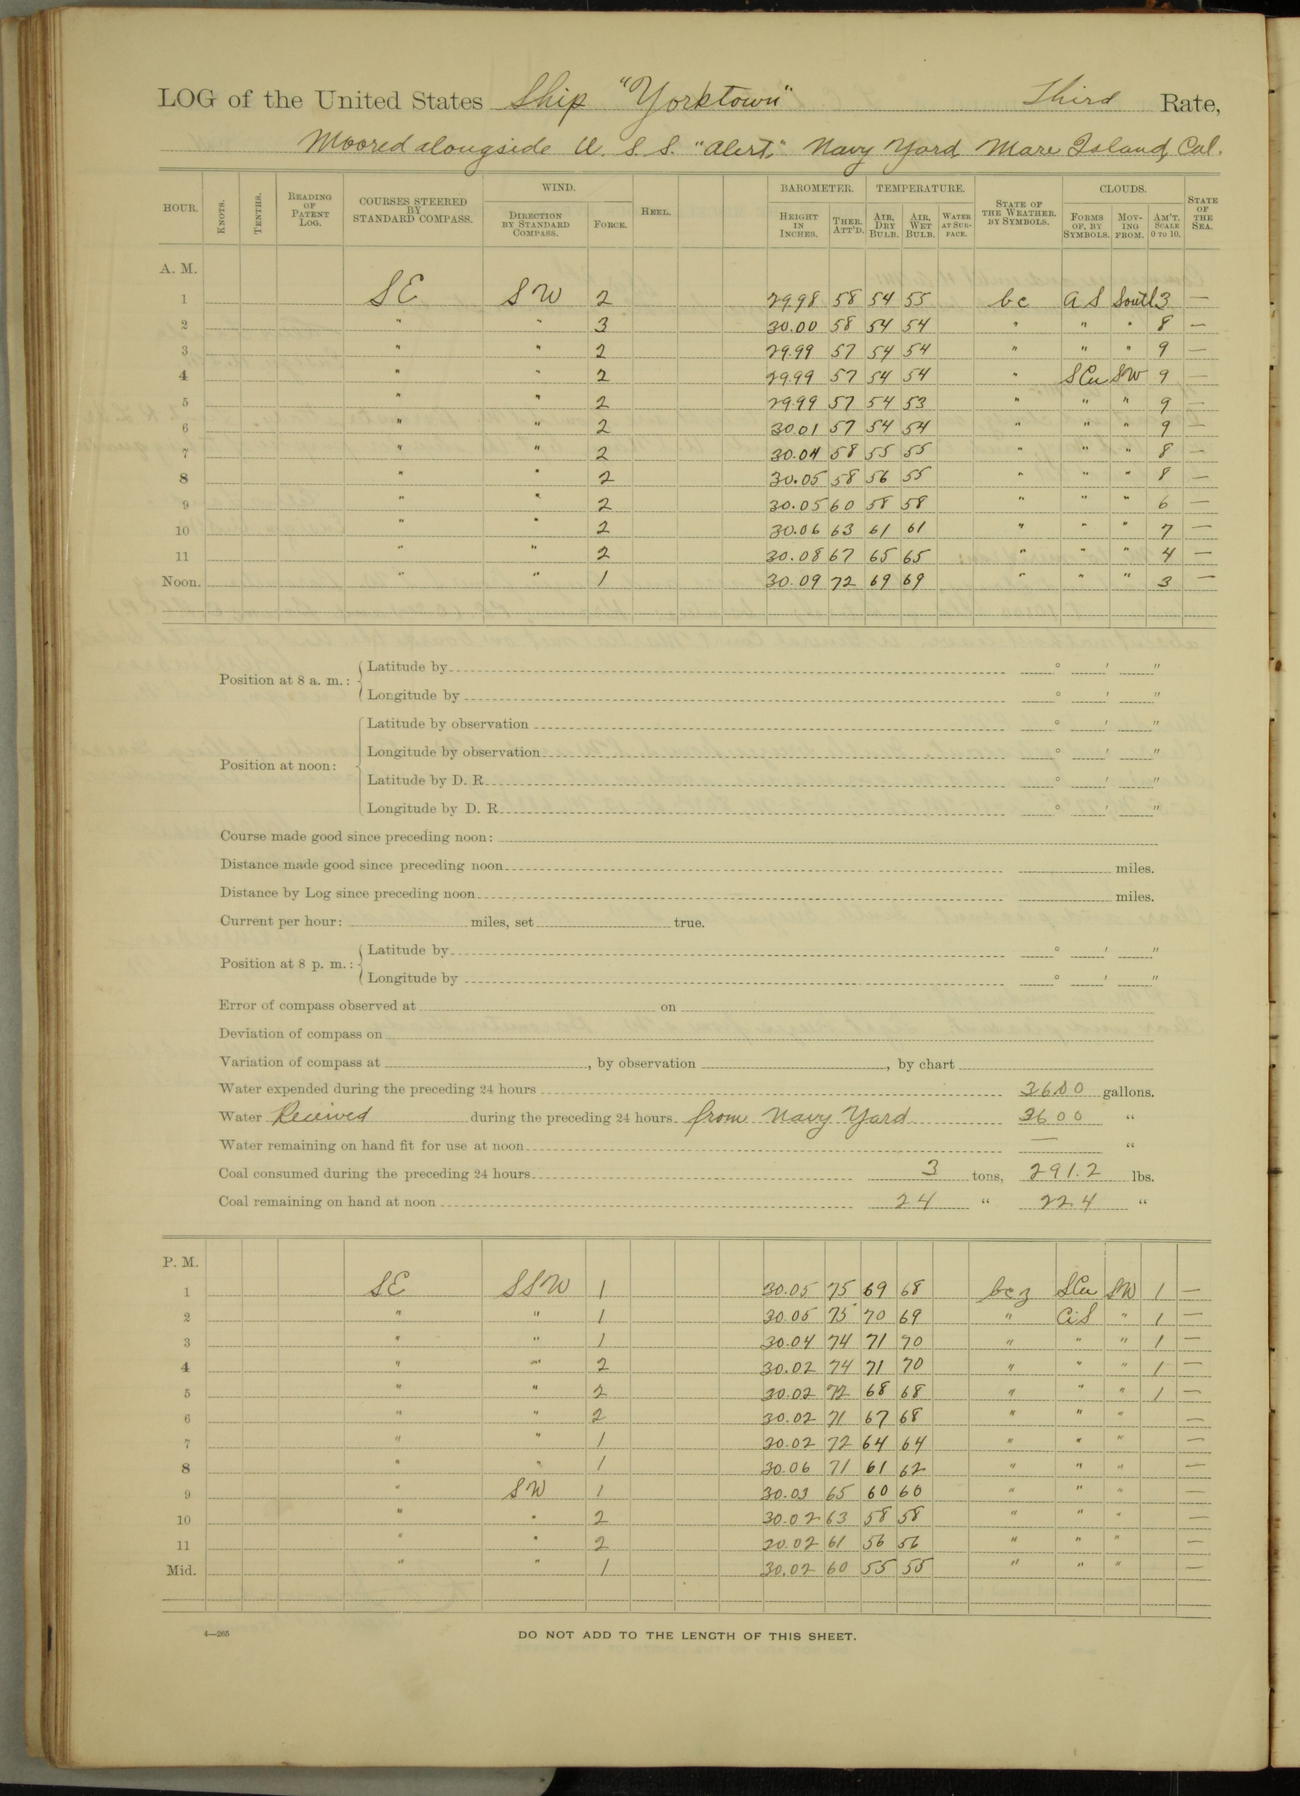 LOG of the United States Ship "Yorktown" Third Rate,
Moored alongside U. S. S. "Alert," Navy Yard Mare Island, Cal.
HOUR. KNOTS. TENTHS. READING OF PATENT LOG. COURSES STEERED BY STANDARD COMPASS. WIND. DIRECTION BY STANDARD COMPASS. FORCE. HEEL. BAROMETER. HEIGHT IN INCHES. THER. ATT'D. TEMPERATURE. AIR, DRY BULB. AIR, WET BULB. WATER AT SURFACE. STATE OF THE WEATHER, BY SYMBOLS. CLOUDS. FORMS OF, BY SYMBOLS. MOVING FROM. AM'T. SCALE 0 TO 10. STATE OF THE SEA.
A. M.
1 SE SW 2 29.98 58 54 55 bc A S South 3 —
2 " " 3 30.00 58 54 54 " " " 8 —
3 " " 2 29.99 57 54 54 " " " 9 —
4 " " 2 29.99 57 54 54 " S Cu SW 9 —
5 " " 2 29.99 57 54 53 " " " 9 —
6 " " 2 30.01 57 54 54 " " " 9 —
7 " " 2 30.04 58 55 55 " " " 8 —
8 " " 2 30.05 58 56 55 " " " 8 —
9 " " 2 30.05 60 58 58 " " " 6 —
10 " " 2 30.06 63 61 61 " " " 7 —
11 " " 2 30.08 67 65 65 " " " 4 —
Noon. " " 1 30.09 72 69 69 " " " 3 —
Position at 8 a. m.: Latitude by ° ′ ″
Longitude by ° ′ ″
Position at noon: Latitude by observation ° ′ ″
Longitude by observation ° ′ ″
Latitude by D. R. ° ′ ″
Longitude by D. R. ° ′ ″
Course made good since preceding noon:
Distance made good since preceding noon miles.
Distance by Log since preceding noon miles.
Current per hour: miles, set true.
Position at 8 p. m.: Latitude by ° ′ ″
Longitude by ° ′ ″
Error of compass observed at on
Deviation of compass on
Variation of compass at , by observation , by chart
Water expended during the preceding 24 hours 3600 gallons.
Water Received during the preceding 24 hours from Navy Yard 3600 "
Water remaining on hand fit for use at noon — "
Coal consumed during the preceding 24 hours 3 tons, 291.2 lbs.
Coal remaining on hand at noon 24 " 224 "
P. M.
1 SE SSW 1 30.05 75 69 68 bcz S Cu SW 1 —
2 " " 1 30.05 75 70 69 " Ci S " 1 —
3 " " 1 30.04 74 71 70 " " " 1 —
4 " " 2 30.02 74 71 70 " " " 1 —
5 " " 2 30.02 72 68 68 " " " 1 —
6 " " 2 30.02 71 67 68 " " " —
7 " " 1 30.02 72 64 64 " " " —
8 " " 1 30.06 71 61 62 " " " —
9 " SW 1 30.03 65 60 60 " " " —
10 " " 2 30.02 63 58 58 " " " —
11 " " 2 30.02 61 56 56 " " " —
Mid. " " 1 30.02 60 55 55 " " " —
4—265
DO NOT ADD TO THE LENGTH OF THIS SHEET.